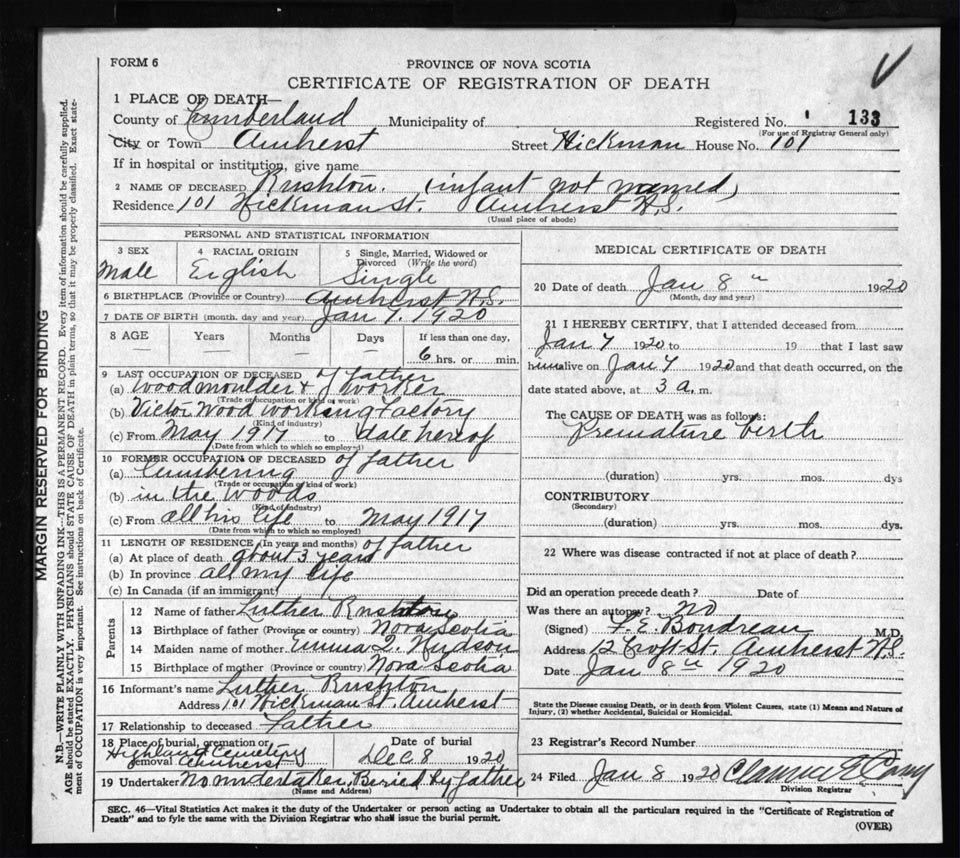 FORM 6
PROVINCE OF NOVA SCOTIA
CERTIFICATE OF REGISTRATION OF DEATH
1 PLACE OF DEATH—
County of Cumberland Municipality of Registered No. 133
(For use of Registrar General only)
City or Town Amherst Street Hickman House No. 101
If in hospital or institution, give name
2 NAME OF DECEASED Rushton. (infant not named)
Residence 101 Hickman St. Amherst N.S.
(Usual place of abode)
PERSONAL AND STATISTICAL INFORMATION
3 SEX Male
4 RACIAL ORIGIN English
5 Single, Married, Widowed or Divorced (Write the word) Single
6 BIRTHPLACE (Province or Country) Amherst N.S.
7 DATE OF BIRTH (month, day and year) Jan 7. 1920
8 AGE Years Months Days If less than one day,
— — — — 6 hrs. or min.
9 LAST OCCUPATION OF DECEASED of father
(a) Woodmoulder & worker
(Trade or occupation or kind of work)
(b) Victor Wood working Factory
(Kind of industry)
(c) From May 1917 to date hereof
(Date from which to which so employed)
10 FORMER OCCUPATION OF DECEASED of father
(a) Lumbering
(Trade or occupation or kind of work)
(b) in the woods
(Kind of industry)
(c) From all his life to May 1917
(Date from which to which so employed)
11 LENGTH OF RESIDENCE (In years and months) of father
(a) At place of death about 3 years
(b) In province all my life
(c) In Canada (if an immigrant)
Parents
12 Name of father Luther Rushton
13 Birthplace of father (Province or country) Nova Scotia
14 Maiden name of mother Emma L. Hudson
15 Birthplace of mother (Province or country) Nova Scotia
16 Informant's name Luther Rushton
Address 101 Hickman St. Amherst
17 Relationship to deceased Father
18 Place of burial, cremation or removal Highland Cemetery Amherst Date of burial Dec 8 1920
19 Undertaker No undertaker, Beried by father
(Name and Address)
MEDICAL CERTIFICATE OF DEATH
20 Date of death Jan 8th 1920
(Month, day and year)
21 I HEREBY CERTIFY, that I attended deceased from
Jan 7 1920 to 19 that I last saw
him alive on Jan 7 1920 and that death occurred, on the
date stated above, at 3 a. m.
The CAUSE OF DEATH was as follows:
Premature birth
(duration) yrs. mos. dys
CONTRIBUTORY
(Secondary)
(duration) yrs. mos. dys.
22 Where was disease contracted if not at place of death?
Did an operation precede death? Date of
Was there an autopsy? No
(Signed) F. E. Boudreau M.D.
Address 12 Croft St. Amherst N.S.
Date Jan 8th 1920
State the Disease causing Death, or in death from Violent Causes, state (1) Means and Nature of
Injury, (2) whether Accidental, Suicidal or Homicidal.
23 Registrar's Record Number
24 Filed Jan 8 1920 Clarence E Casy
Division Registrar
SEC. 46—Vital Statistics Act makes it the duty of the Undertaker or person acting as Undertaker to obtain all the particulars required in the "Certificate of Registration of
Death" and to fyle the same with the Division Registrar who shall issue the burial permit.
(OVER)
MARGIN RESERVED FOR BINDING
N.B.—WRITE PLAINLY WITH UNFADING INK—THIS IS A PERMANENT RECORD. Every item of information should be carefully supplied.
AGE should be stated EXACTLY. PHYSICIANS should STATE CAUSE OF DEATH in plain terms, so that it may be properly classified. Exact state-
ment of OCCUPATION is very important. See instructions on back of Certificate.